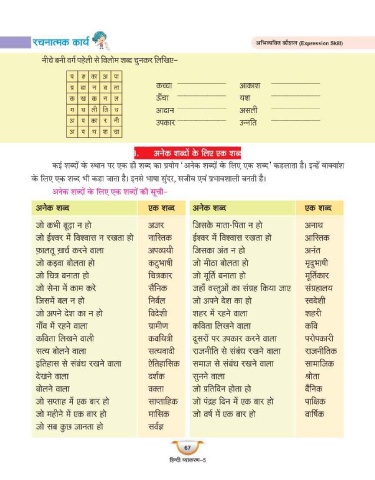 रचनात्मक कार्य
अभिव्यक्ति कौशल (Expression Skill)
नीचे बनी वर्ग पहेली से विलोम शब्द चुनकर लिखिए–
कच्चा आकाश
ऊँचा यश
आदान असली
उपकार उन्नति
अनेक शब्दों के लिए एक शब्द
कई शब्दों के स्थान पर एक ही शब्द का प्रयोग 'अनेक शब्दों के लिए एक शब्द' कहलाता है। इन्हें वाक्यांश
के लिए एक शब्द भी कहा जाता है। इनसे भाषा सुंदर, सजीव एवं प्रभावशाली बनती है।
अनेक शब्दों के लिए एक शब्दों की सूची-
अनेक शब्द एक शब्द अनेक शब्द एक शब्द
जो कभी बूढ़ा न हो अजर जिसके माता-पिता न हो अनाथ
जो ईश्वर में विश्वास न रखता हो नास्तिक ईश्वर में विश्वास रखता हो आस्तिक
फ़ालतू खर्च करने वाला अपव्ययी जिसका अंत न हो अनंत
जो कड़वा बोलता हो कटुभाषी जो मीठा बोलता हो मृदुभाषी
जो चित्र बनाता हो चित्रकार जो मूर्ति बनाता हो मूर्तिकार
जो सेना में काम करे सैनिक जहाँ वस्तुओं का संग्रह किया जाए संग्रहालय
जिसमें बल न हो निर्बल जो अपने देश का हो स्वदेशी
जो अपने देश का न हो विदेशी शहर में रहने वाला शहरी
गाँव में रहने वाला ग्रामीण कविता लिखने वाला कवि
कविता लिखने वाली कवयित्री दूसरों पर उपकार करने वाला परोपकारी
सत्य बोलने वाला सत्यवादी राजनीति से संबंध रखने वाला राजनीतिक
इतिहास से संबंध रखने वाला ऐतिहासिक समाज से संबंध रखने वाला सामाजिक
देखने वाला दर्शक सुनने वाला श्रोता
बोलने वाला वक्ता जो प्रतिदिन होता हो दैनिक
जो सप्ताह में एक बार हो साप्ताहिक जो पंद्रह दिन में एक बार हो पाक्षिक
जो महीने में एक बार हो मासिक जो वर्ष में एक बार हो वार्षिक
जो सब कुछ जानता हो सर्वज्ञ
67
हिन्दी व्याकरण-5